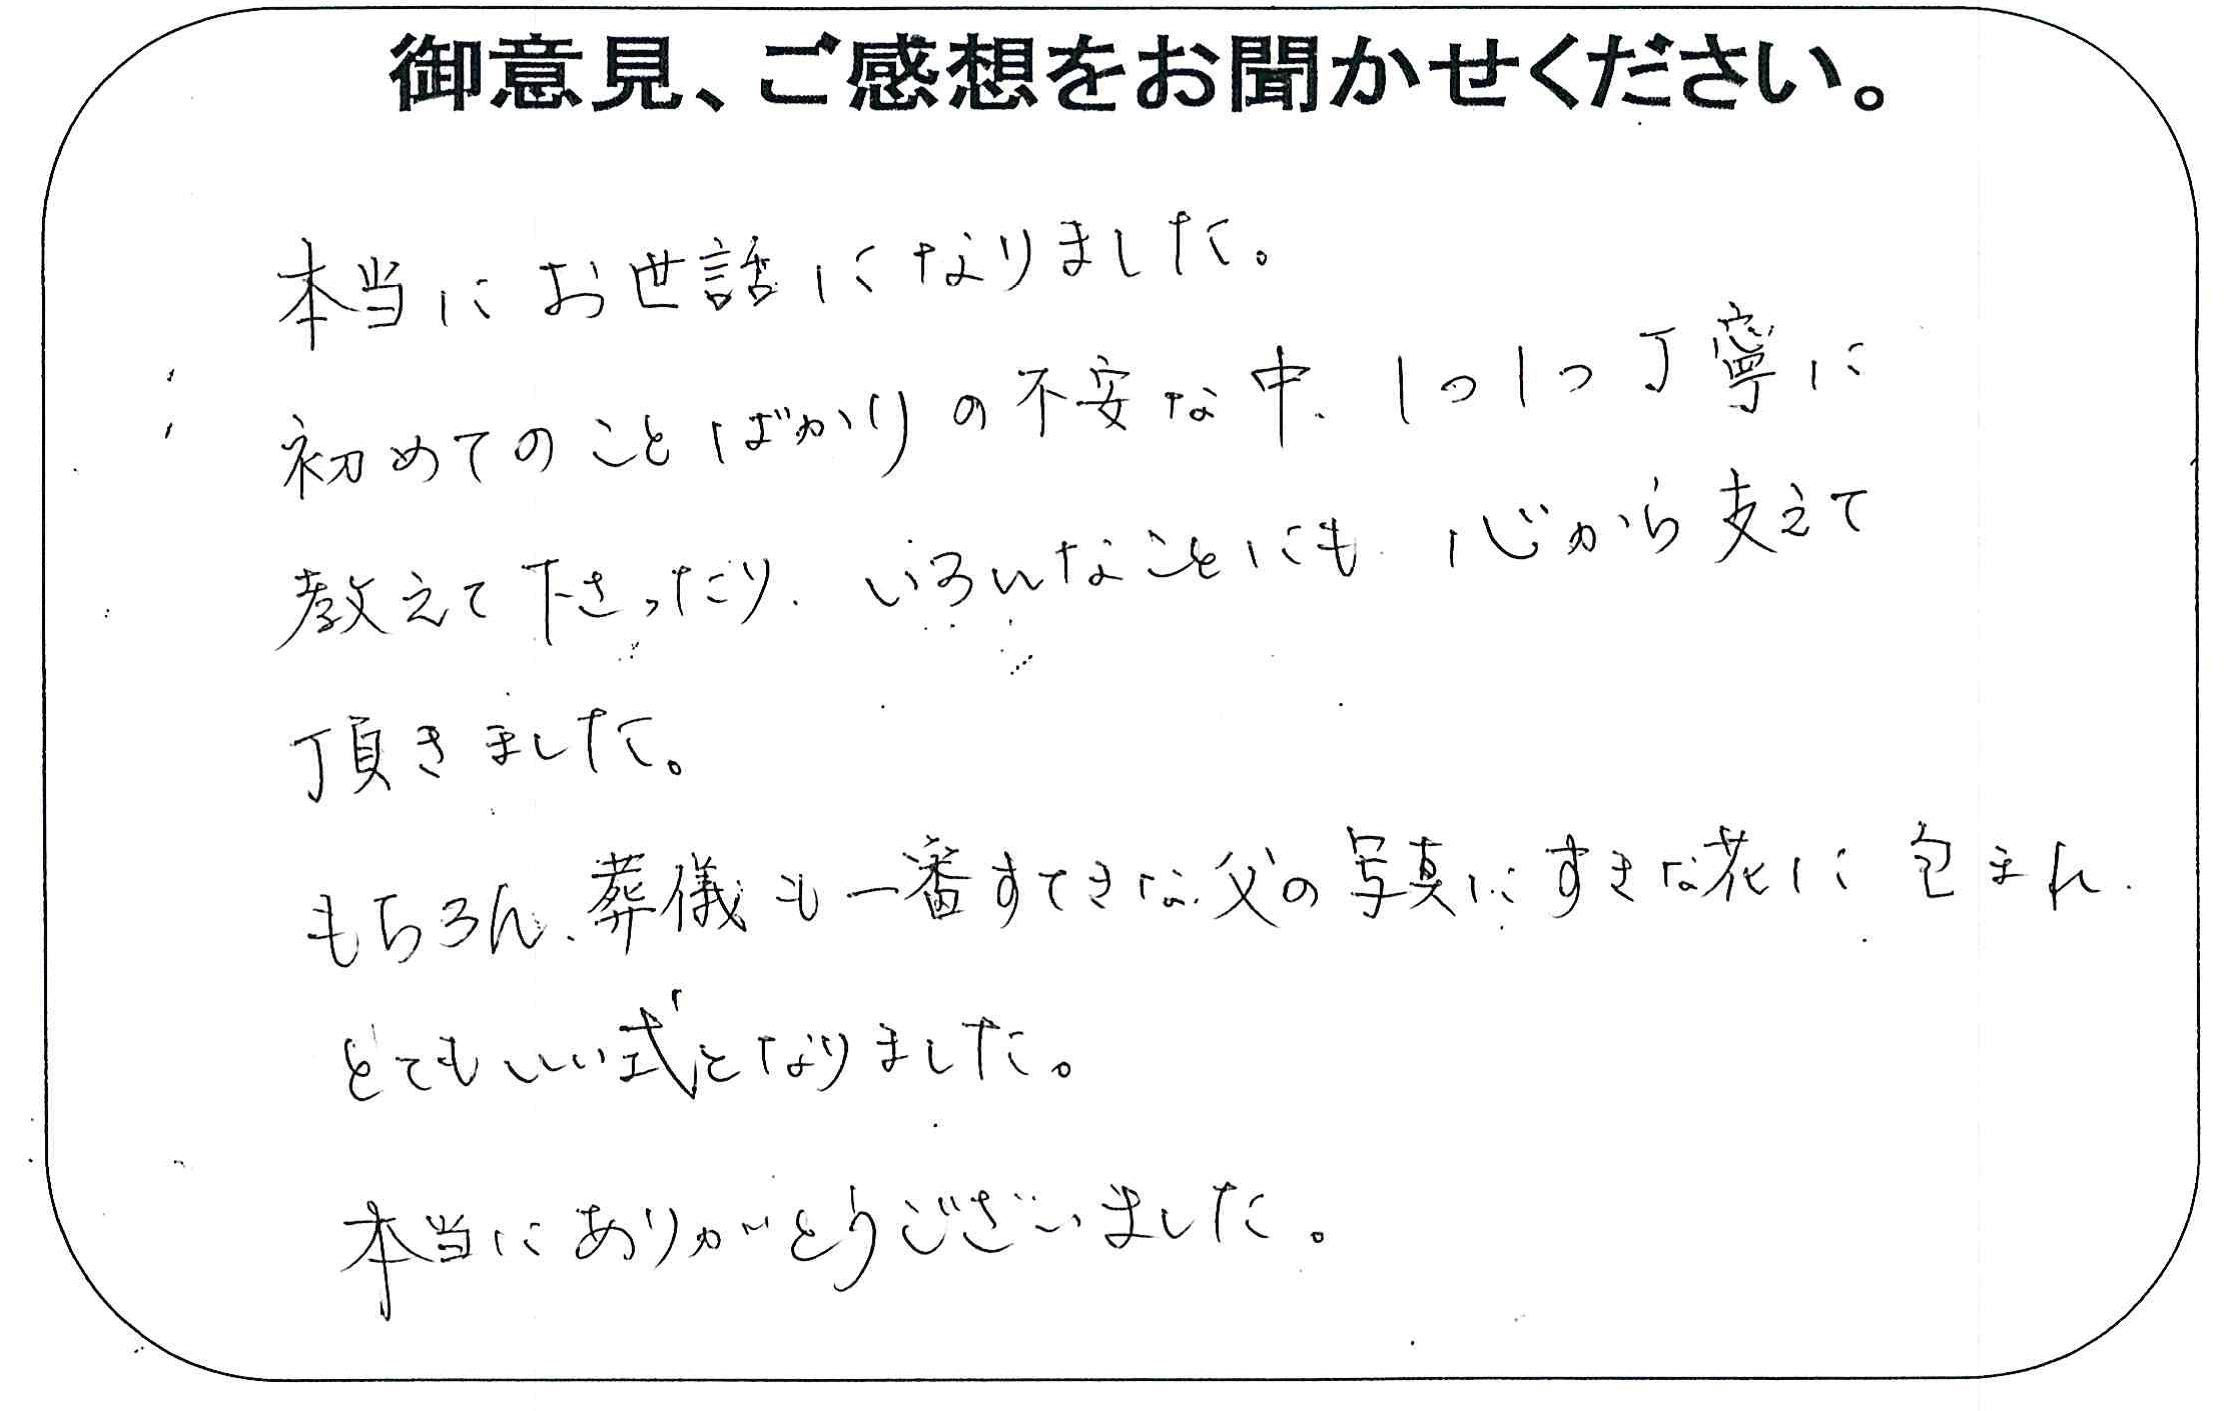 御意見、ご感想をお聞かせください。
本当にお世話になりました。
初めてのことばかりの不安な中、1つ1つ丁寧に
教えて下さったり、いろんなことにも心から支えて
頂きました。
もちろん、葬儀も一番すてきな父の写真にすきな花に包まれ、
とてもいい式となりました。
本当にありがとうございました。